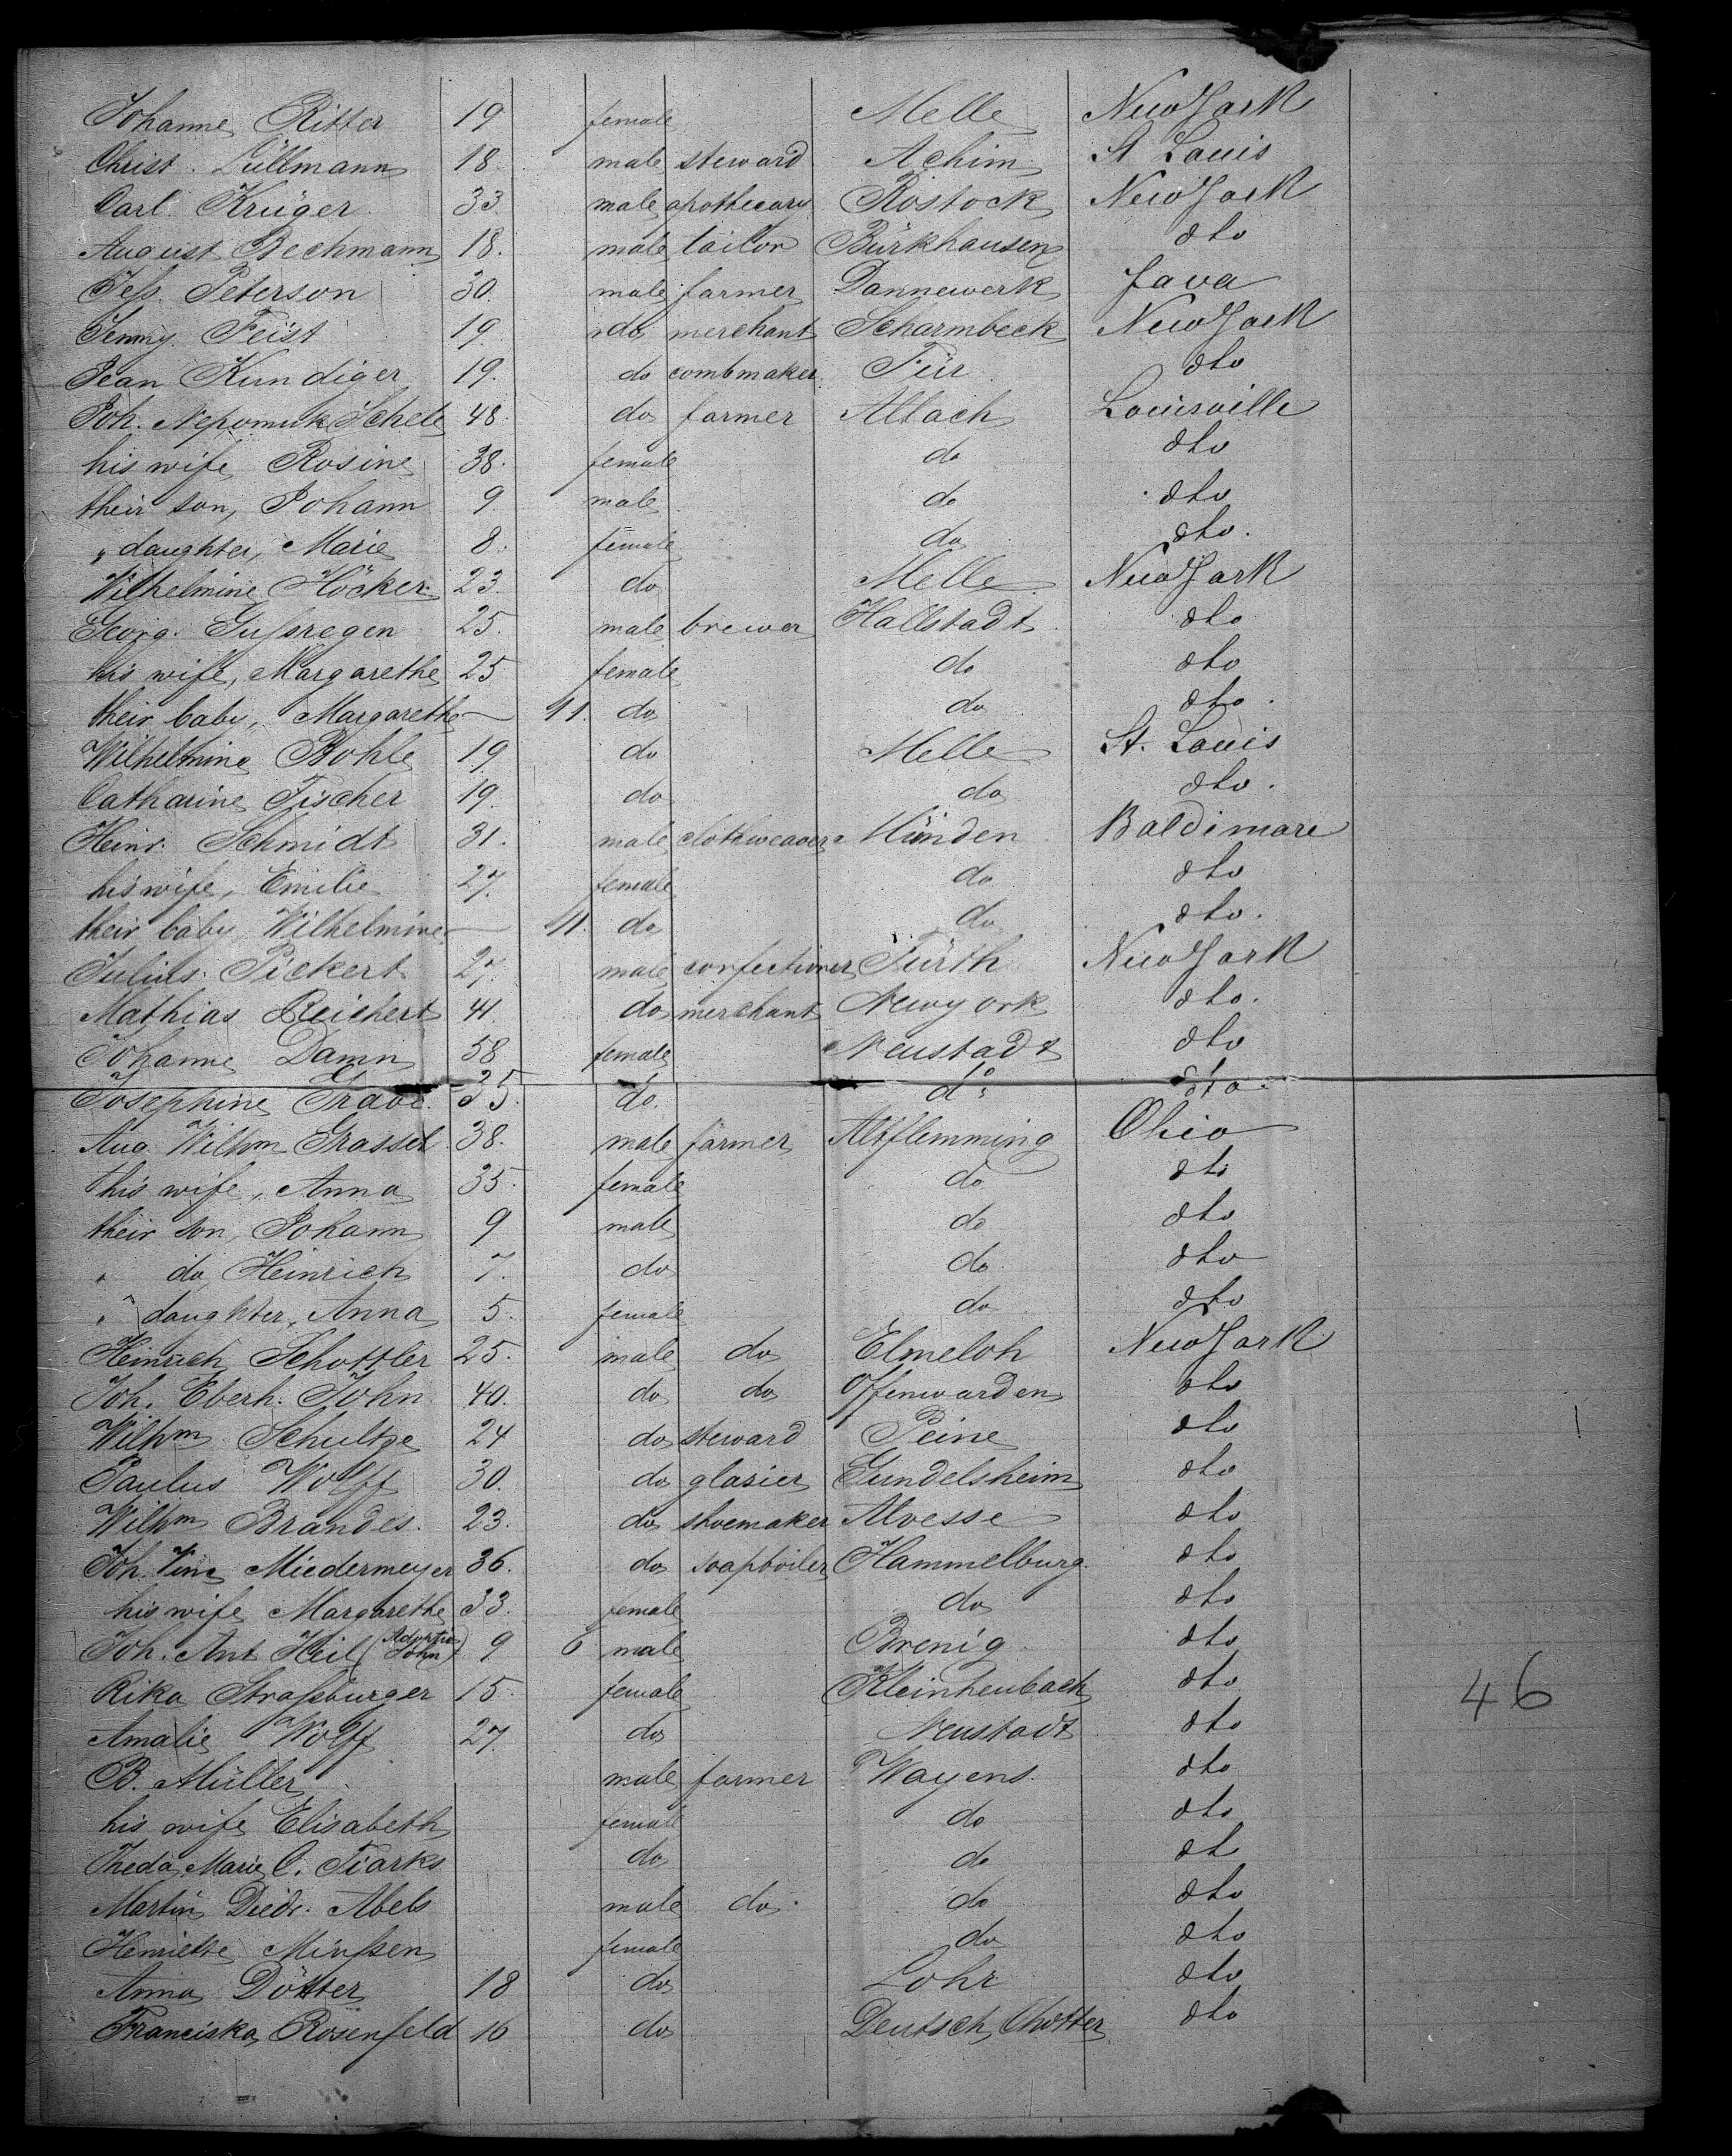 Johanne Ritter 19 female Melle New York
Christ. Lüllmann 18. male steward Achim St Louis
Carl Krüger 33. male apothecary Rostock New York
August Bechmann 18. male tailor Bürkhausen dto
Jess. Peterson 30. male farmer Dannewerk Java
Jenny Feist 19. do merchant Scharmbeck New York
Jean Kundiger 19. do combmaker Tür dto
Joh. Nepomuk Schele 48. do farmer Allach Louisville
his wife Rosine 38. female do dto
their son, Johann 9. male do dto
„ daughter, Marie 8. female do dto.
Wilhelmine Höcker 23. do Melle New York
Georg. Gussregen 25. male brewer Hallstadt dto
his wife, Margarethe 25 female do dto
their baby, Margarethe — 11. do do dto.
Wilhelmine Bohle 19 do Melle St. Louis
Catharine Fischer 19. do do dto.
Heinr. Schmidt 31. male clothweaver Münden Baldimare
his wife, Emilie 27. female do dto
their baby Wilhelmine — 11. do do dto.
Julius Pickert 27. male confectioner Fürth New York
Mathias Reichert 41. do merchant Newyork dto.
Johanne Damn 58 female Neustadt dto
Josephine 35. do. do dto.
Aug. Wilhm Grassel 38. male farmer Altflemming Ohio
his wife, Anna 35. female do dto
their son, Johann 9 male do dto
„ do Heinrich 7. do do dto
„ daughter, Anna 5. female do dto
Heinrich Schottler 25. male do Elmeloh New York
Joh. Eberh. John 40. do do Offenwarden dto
Wilhm Schultze 24 do steward Peine dto
Paulus Wolff 30. do glasier Gundelsheim dto
Wilhm Brandes. 23. do shoemaker Alvesse dto
Joh. Vinc Miedermeyer 36. do soapboiler Hammelburg. dto
his wife Margarethe 33. female do dto
Joh. Ant Heil (Adoptiv John) 9 6 male Brenig dto
Rika Strassburger 15. female Kleinheubach dto
Amalie Wolff 27. do Neustadt dto
46
B. Müller male farmer Wayens. dto
his wife Elisabeth female do dto
Theda Marie C. Tiarks do do dt
Martin Diedr. Abels male do. do dto
Henriette Minssen female do dto
Anna Dötter 18 do Lohr dto
Franciska Rosenfeld 16 do Deutsch Chotter dto